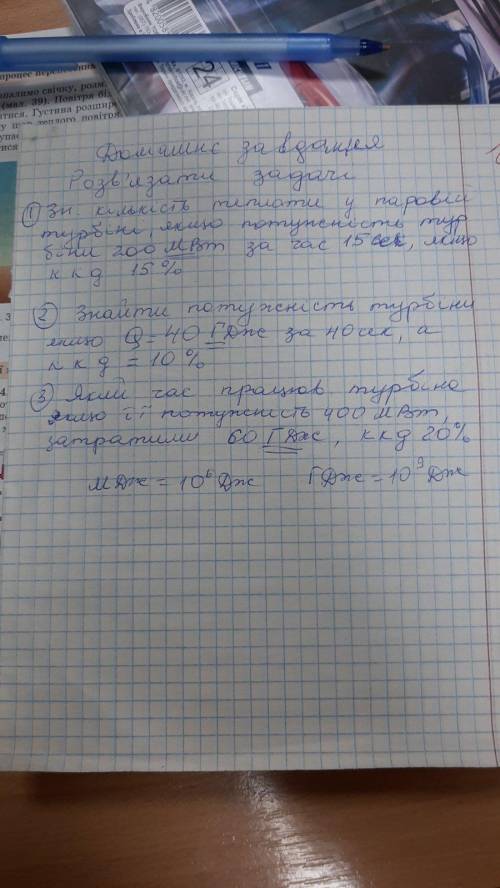 процес перенесення
палимо свічку, розм
(мал. 39). Повітря бі
тися. Густина розшир
теплого повітря
24
Домашнє завдання
Розв'язати задачі
① Зн. кількість теплоти у паровій
турбіні, якщо потужність тур
біни 200 МВт за час 15 сек, якщо
ккд 15%
② Знайти потужність турбіни
якщо Q = 40 ГДж за 40 сек, а
ккд = 10%
③ Який час працює турбіна
якщо її потужність 400 МВт,
затратили 60 ГДж, ккд 20%
МДж = 10⁶ Дж ГДж = 10⁹ Дж